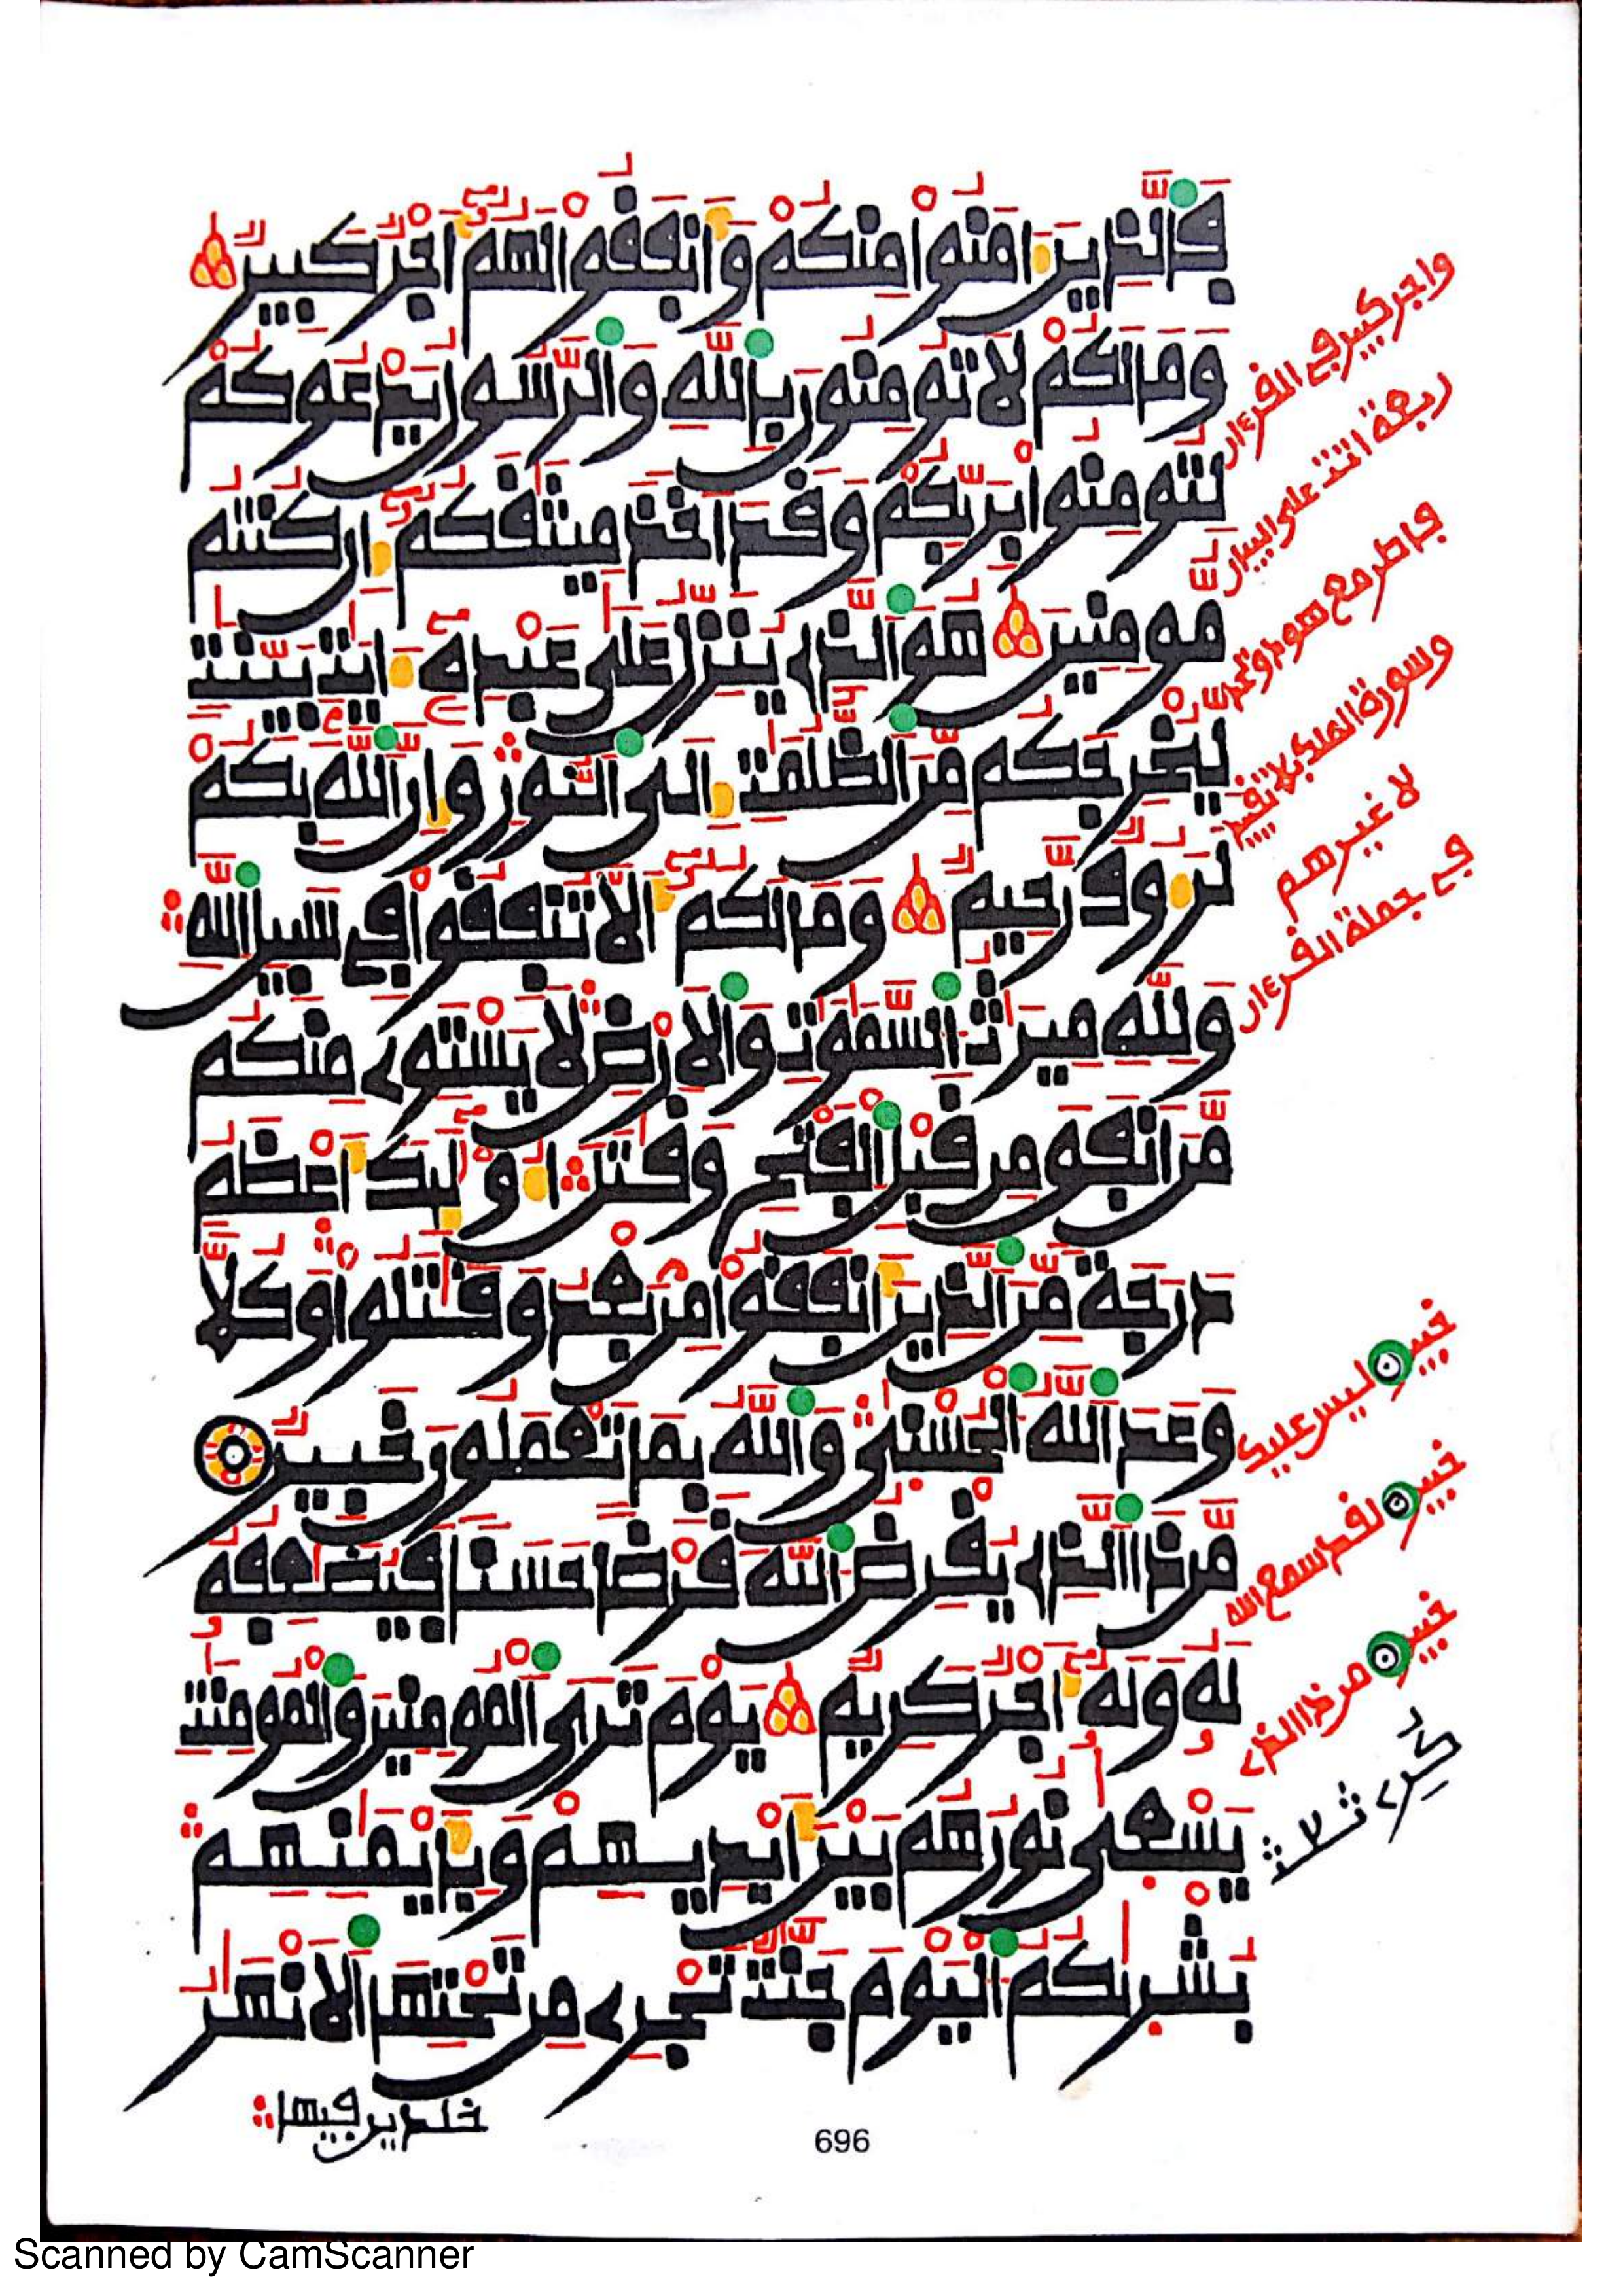 فالذين ءامنوا منكم وأنفقوا لهم أجر كبير
وما لكم لا تومنون بالله والرسول يدعوكم
لتومنوا بربكم وقد أخذ ميثقكم إن كنتم
مومنين هو الذي ينزل على عبده ءايت بينت
ليخرجكم من الظلمت إلى النور وإن الله بكم
لرءوف رحيم وما لكم ألا تنفقوا في سبيل الله
ولله ميرث السموت والارض لا يستوي منكم
من أنفق من قبل الفتح وقتل أولئك أعظم
درجة من الذين أنفقوا من بعد وقتلوا وكلا
وعد الله الحسنى والله بما تعملون خبير
من ذا الذي يقرض الله قرضا حسنا فيضعفه
له وله أجر كريم يوم ترى المومنين والمومنت
يسعى نورهم بين أيديهم وبأيمنهم
بشريكم اليوم جنت تجري من تحتها الانهر
خلدين فيها
واجر كبير في القرءان
ربعة اتت على البيان
فاطر مع هود
وسورة الملك بلا تقييد
لا غيرهم
في جملة القرءان
ليس عليك
لقد سمع الله
من ذا الذي
696
Scanned by CamScanner